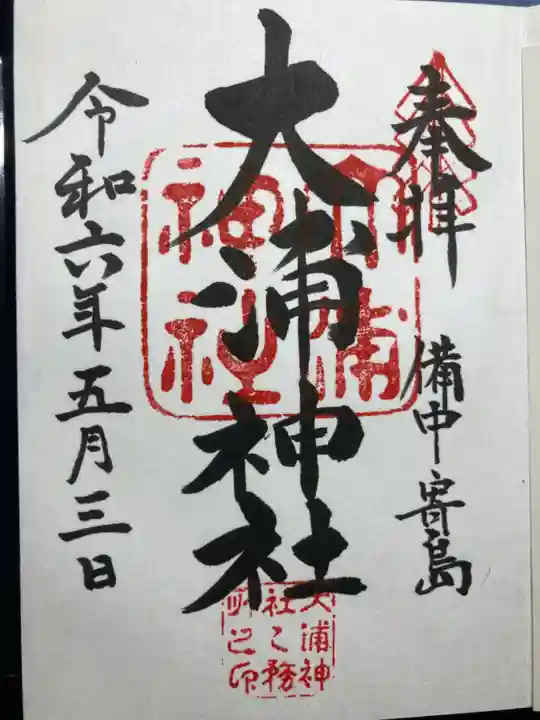 奉拝
備中寄島
大浦神社
大浦
神社
大浦神
社之務
所之印
令和六年五月三日